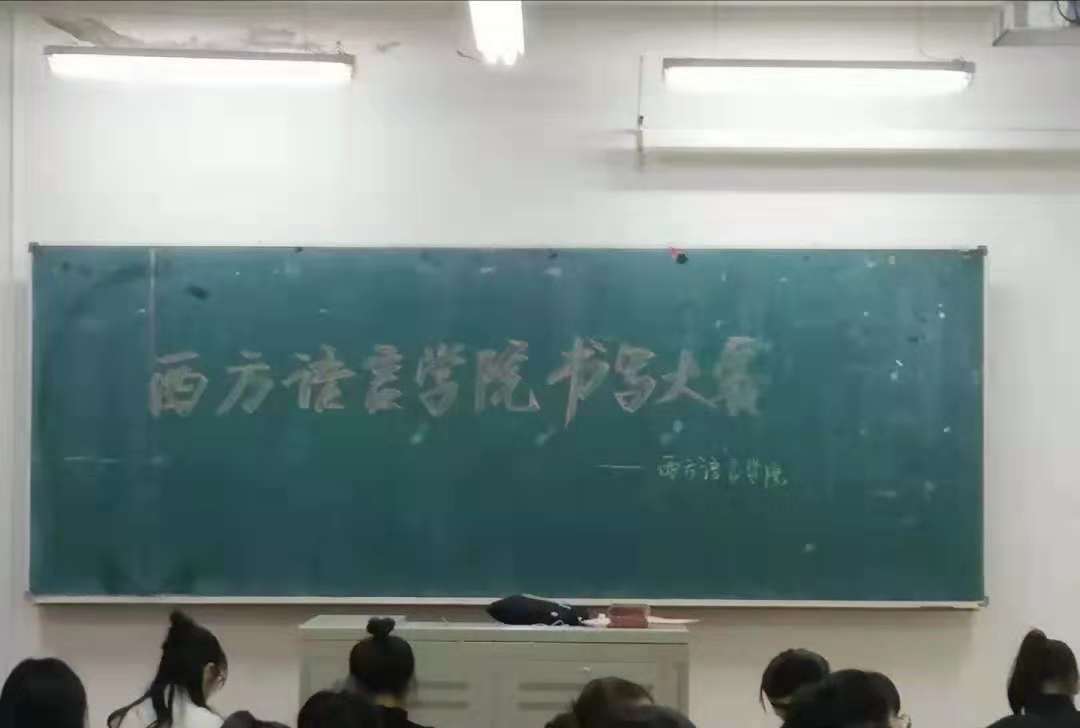 西方语言学院书写大赛
——西方语言学院